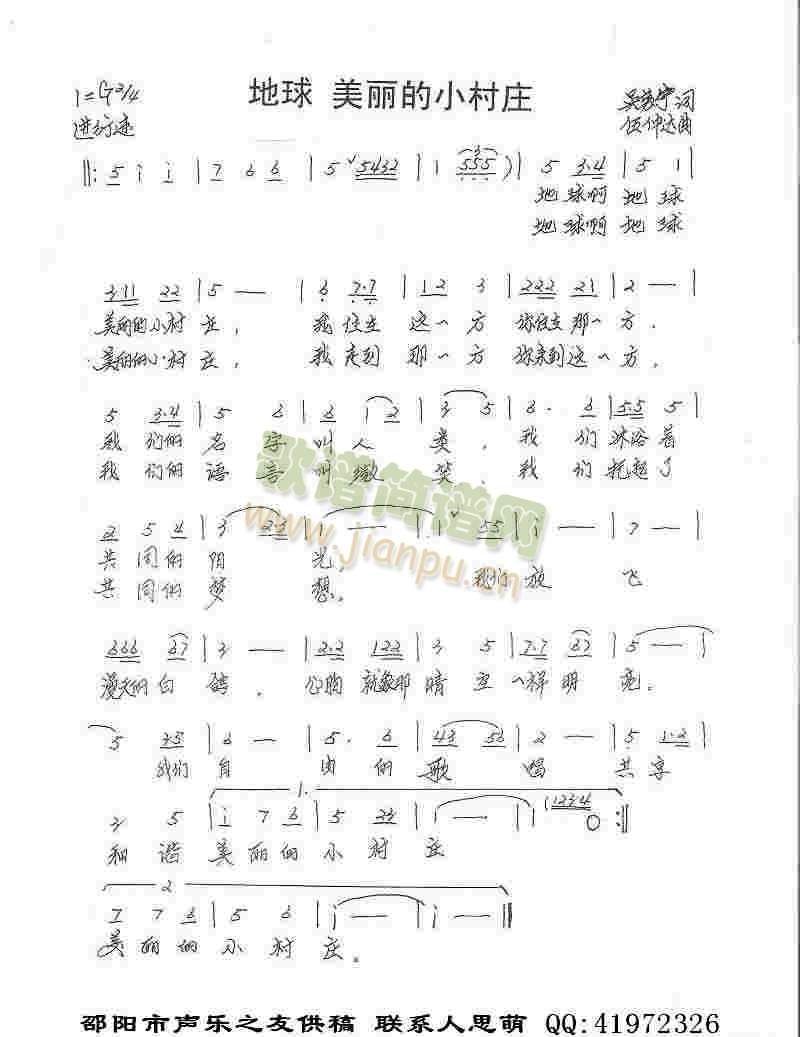 地球 美丽的小村庄
1=G 2/4
进行速
词
伍仲达曲
‖: 5 i i | 7 6 6 | 5 ˅5432 | 1 555 ) | 5 3·4 | 5 1 |
地球啊地球
地球啊地球
3·11 22 | 5 — | 6 7·7 | 12 3 | 222 21 | 2 — |
美丽的小村庄， 我住在这一方 你住在那一方．
美丽的小村庄， 我走到那一方 你来到这一方．
5 3·4 | 5 6 | 6 i 2 | 3 5 | 6· 6 | 5·5 5 |
我们的名字叫人类， 我们沐浴着
我们的语言叫微笑， 我们托起了
2 5 4 | 3 23 | 1 — | 1 ˅55 | i — | 7 — |
共同的阳光， 我们放飞
共同的梦想．
歌谱简谱网
www.jianpu.cn
666 67 | 3 — | 2·2 122 | 3 5 | 7·7 67 | 5 — |
漫天的白鸽， 心胸就象那晴空一样明亮．
5 35 | 6 — | 5· 6 | 43 56 | 2 — | 5 1·2 |
我们自由的歌唱 共享
1.
3 5 | i 7 6 | 5 23 | 1 — | 1 (1234 0 :‖
和谐美丽的小村庄
2
7 7 6 | 5 6 | i — | i — ‖
美丽的小村庄．
邵阳市声乐之友供稿 联系人思萌 QQ:41972326